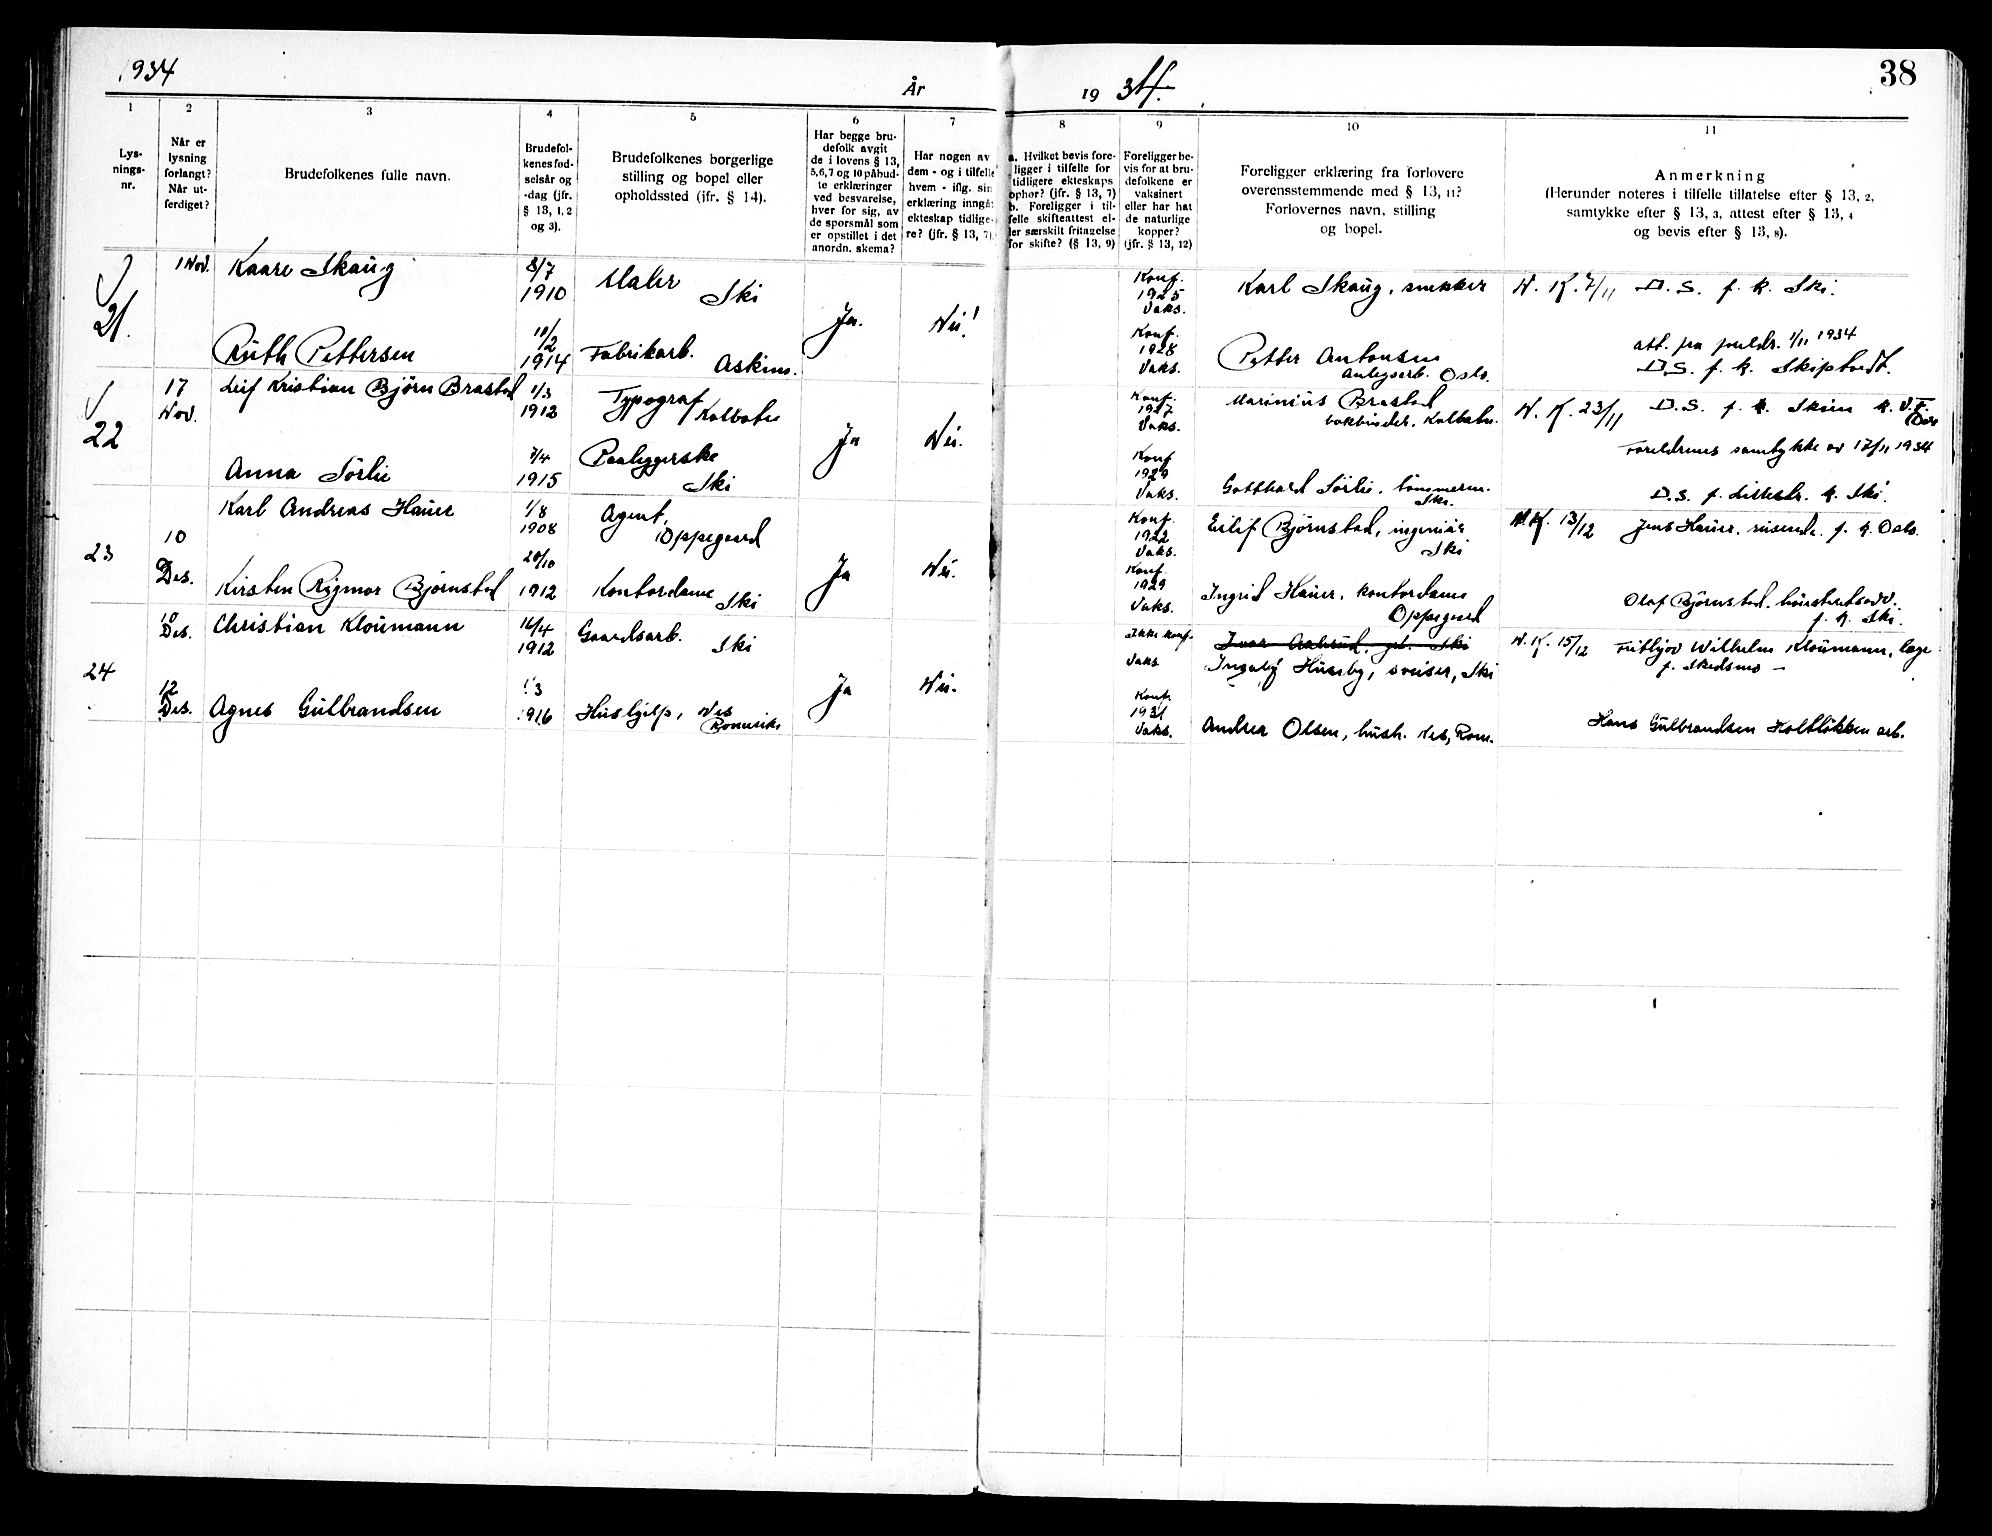 1934
År
19 34.
38
1
2
3
4
5
6
7
8
9
10
11
Lys-
nings-
nr.
Når er
lysning
forlangt?
Når ut-
ferdiget?
Brudefolkenes fulle navn.
Brudefol-
kenes fød-
selsår og
-dag (jfr.
§ 13, 1, 2
og 3).
Brudefolkenes borgerlige
stilling og bopel eller
opholdssted (jfr. § 14).
Har begge bru-
defolk avgit
de i lovens § 13,
5,6,7 og 10 påbud-
te erklæringer
ved besvarelse,
hver for sig, av
de spørsmål som
er opstillet i det
anordn. skema?
Har nogen av
dem - og i tilfelle
hvem - iflg. sin
erklæring inngåt
ekteskap tidlige-
re? (jfr. § 13, 7).
a. Hvilket bevis fore-
ligger i tilfelle for
tidligere ekteskaps
ophør? (jfr. § 13, 7)
b. Foreligger i til-
felle skifteattest el-
ler særskilt fritagelse
for skifte? (§ 13, 9)
Foreligger be-
vis for at bru-
defolkene er
vaksinert
eller har hat
de naturlige
kopper?
(jfr. § 13, 12)
Foreligger erklæring fra forlovere
overensstemmende med § 13, 11?
Forlovernes navn, stilling
og bopel.
Anmerkning
(Herunder noteres i tilfelle tillatelse efter § 13, 2,
samtykke efter § 13, 3, attest efter § 13, 4
og bevis efter § 13, 8).
21.
1 Nov.
Kaare Skaug
8/7
1910
Maler
Ski
Ja.
Nei!
Konf.
1925
Vaks.
Karl Skaug, snekker
N. K. 7/11
D. S. f. k. Ski.
Ruth Pettersen
10/2
1914
Fabrikarb.
Askim.
Konf.
1928
Vaks.
Petter Antonsen
anlegsarb. Oslo.
att. fra preldr. 1/11 1934
D. S. f. k. Skiptvedt.
22
17
Nov.
Leif Kristian Bjørn Brastad
1/3
1912
Typograf
Kolbotn
Ja
Nei.
Konf.
1927
Vaks.
Marinius Brastad
bokbinder. Kolbotn.
N. K. 23/11
D. S. f. k. Skien k. V. F.
Anna Sørlie
7/4
1915
Paaleggerske
Ski
Konf
1929
Vaks.
Gotthard Sørlie, tømmerm.
Ski.
Foreldrenes samtykke av 17/11 1934
D. S. f. Lillestr. k. Ski.
23
10
Des.
Karl Andreas Hauer
1/8
1908
Agent,
Oppegaard
Ja
Nei.
Konf.
1922
Vaks.
Eilif Bjørnstad, ingeniør
Ski
N. K. 13/12
Jens Hauer, reisende. f. k. Oslo.
Kirsten Rigmor Bjørnstad
20/10
1912
Kontordame
Ski
Konf.
1929
Vaks.
Ingrid Hauer, kontordame
Oppegaard
Olaf Bjørnstad, høiesteretsadv.
f. k. Ski.
24
10
Des.
Christian Kloumann
16/4
1912
Gaardsarb.
Ski
Ja
Nei.
Ikke konf.
Vaks.
Ivar Aabrud, gb. Ski
Ingolf Huseby, sveiser, Ski
N. K. 15/12
Fritjov Wilhelm Kloumann, læge
f. Skedsmo –
12
Des.
Agnes Gulbrandsen
1/3
1916
Hushjelp, Nes
Romerike
Konf.
1931
Vaks.
Andrea Olsen, hush. Nes, Rom.
Hans Gulbrandsen Holtløkken arb.